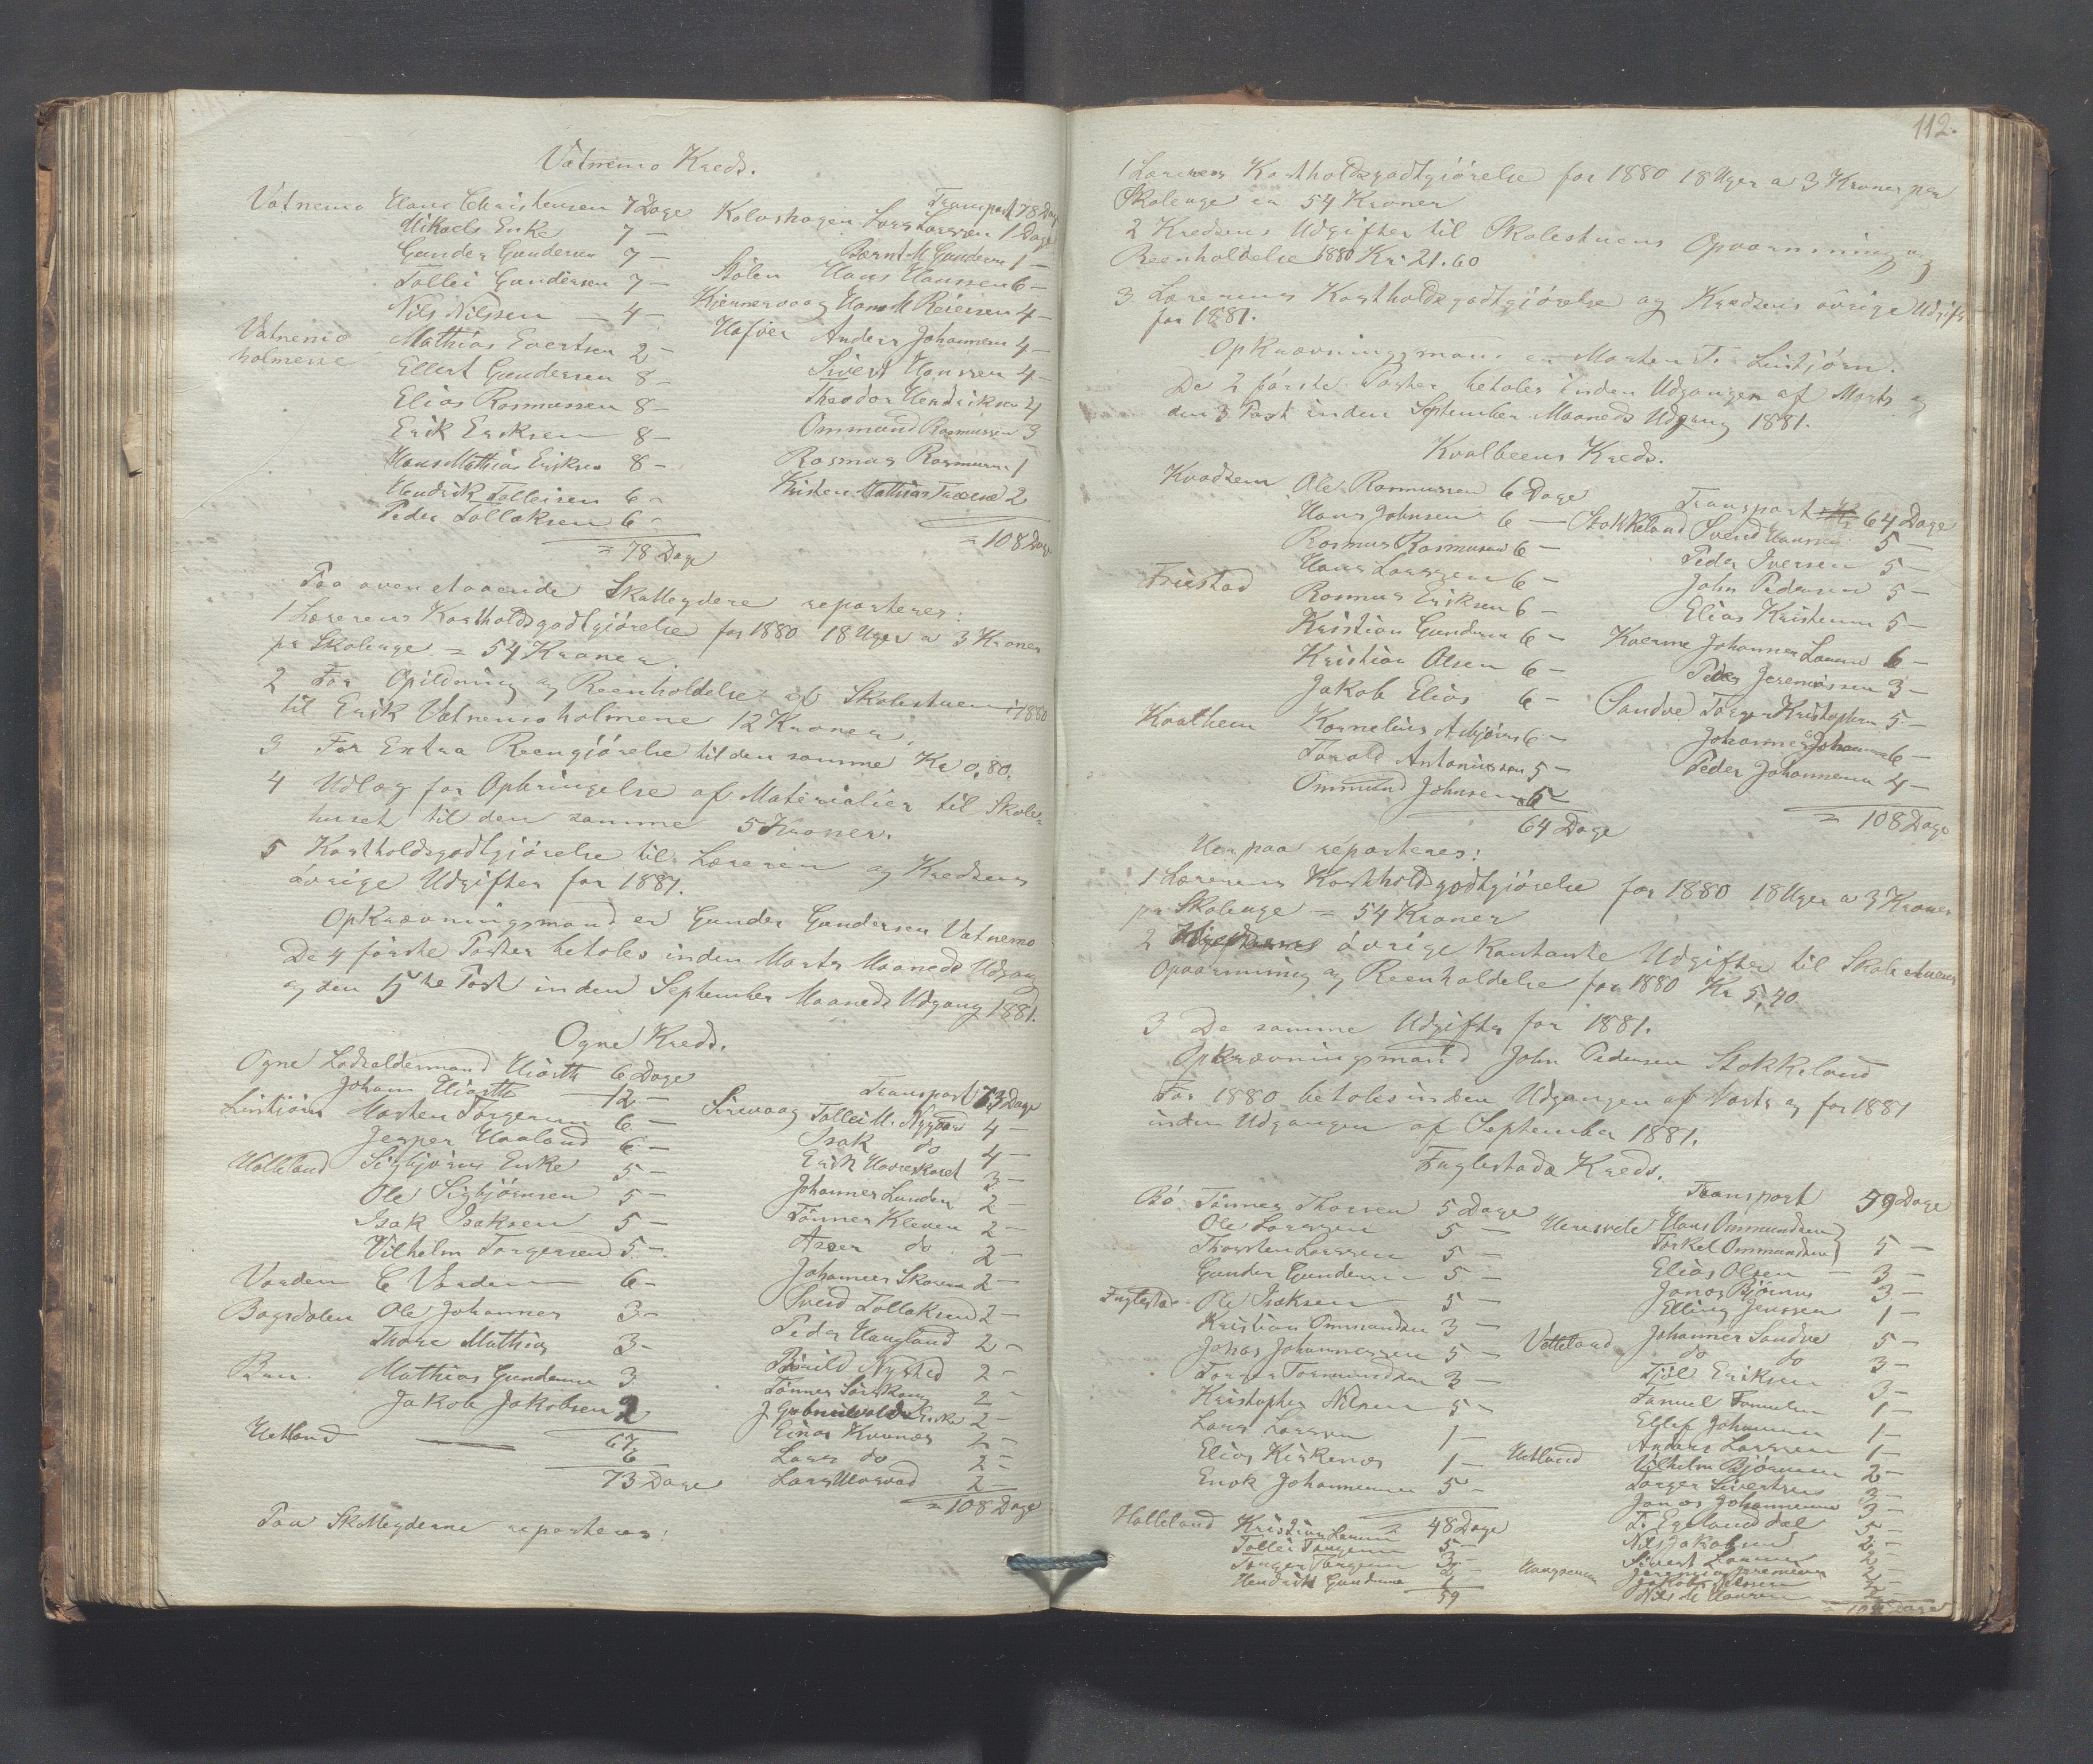 Vatnemo Kreds.
Vatnemo Hans Christensen 7 Dage
Mikaels Enke 7 –
Gunder Gundersen 7 –
Tollei Gundersen 7 –
Nils Nilssen – 4 –
Vatnemo holmene Mathias Evertsen 2 –
Ellert Gundersen 8 –
Elias Rasmussen 8 –
Erik Eriksen 8 –
Hans Mathias Eriksen 8 –
Hendrik Tolleisen 6 –
Peder Tollaksen 6 –
= 78 Dage
Transport 78 Dage
Kalvshagen Lars Larssen 1 Dage
Bernt M Gundersen 1 –
Stølen Hans Hanssen 6 –
Kjennervaag Hans M Reiersen 4 –
Hafsøe Anders Johannesen 4 –
Sivert Hanssen 4 –
Theodor Hendriksen 4
Ommund Rasmussen 3
Rasmus Rasmussen 1
Kristen Mathias 2
= 108 Dage
Paa ovenstaaende Skatteydere reparteres:
1 Lærerens Kostholdsgodtgjørelse for 1880 18 Uger a 3 Kroner
pr Skoleuge = 54 Kroner.
2 For Opildning og Reenholdelse af Skolestuen i 1880
til Erik Vatnemoholmene 12 Kroner.
3 For Extra Reengjørelse til den samme Kr 0,80.
4 Udlæg for Opbringelse af Materialier til Skole-
huset til den samme 5 Kroner.
5 Kostholdsgodtgjørelse til Læreren og Kredsens
øvrige Udgifter for 1881.
Opkrævningsmand er Gunder Gundersen Vatnemo
De 4 første Poster betales inden Marts Maaneds Udgang
og den 5te Post inden September Maaneds Udgang 1881.
Ogne Kreds.
Ogne Lodsoldermand Hiorth 6 Dage
Johan Hiorth 12 –
Lintjørn Morten Torgersen 6 –
Jesper Haaland 6 –
Hølleland Sigbjørns Enke 5 –
Ole Sigbjørnsen 5 –
Isak Isaksen 5 –
Vilhelm Torgersen 5 –
Varden C Varden 6 –
Bøgsdalen Ole Johannes 3 –
Thore Mathias 3 –
Mathias Gundersen 3
Jakob Jakobsen 2
67
Hetland 6
73 Dage
Transport 73 Dage
Sirevaag Tollei M. Nygaard 4 –
Isak do 4 –
Erik 3 –
Johannes Lunden 2 –
Tønnes Kleven 2 –
Asser do 2 –
Johannes 2 –
Svend Tollaksen 2 –
Peder Haugland 2 –
Nysted 2 –
Tønnes 2 –
Enke 2 –
Einar 2 –
Lars do 2 –
Lars 2
= 108 Dage
Paa Skatteyderne reparteres:
112.
1 Lærerens Kostholdsgodtgjørelse for 1880 18 Uger a 3 Kroner per
Skoleuge er 54 Kroner
2 Kredsens Udgifter til Skolestuens Opvarmning og
Reenholdelse 1880 Kr. 21.60
3 Lærerens Kostholdsgodtgjørelse og Kredsens øvrige Udgifter
for 1881.
Opkrævningsmand er Morten T. Lintjørn.
De 2 første Poster betales inden Udgangen af Marts og
den 3 Post inden September Maaneds Udgang 1881.
Kvalbeens Kreds.
Ole Rasmussen 6 Dage
Hans Johnsen 6 –
Rasmus Rasmussen 6 –
Hans Larssen 6 –
Friestad Rasmus Eriksen 6 –
Kristian Gundersen 6 –
Kristian Olsen 6 –
Jakob Elias 6 –
Kvalbein Kornelius Asbjørns 6 –
Torald Antoniussen 5 –
Ommund Johnsen 5 –
64 Dage
Transport 64 Dage
Stokkeland Svend Hanssen 5 –
Peder Iversen 5 –
John Pedersen 5 –
Elias Kristensen 5 –
Johannes Larsen 6 –
Peder Jeremiassen 3 –
Sandve Torger Kristophersen 5 –
Johannes Johannessen 6 –
Peder Johannesen 4 –
= 108 Dage
Herpaa reparteres:
1 Lærerens Kostholdsgodtgjørelse for 1880 18 Uger a 3 Kroner
pr Skoleuge = 54 Kroner
2 øvrige kontante Udgifter til Skolestuens
Opvarmning og Reenholdelse for 1880 Kr 5,40
3 De samme Udgifter for 1881.
Opkrævningsmand John Pedersen Stokkeland
For 1880 betales inden Udgangen af Marts og for 1881
inden Udgangen af September 1881.
Fuglestads Kreds.
Bø Tønnes Thorsen 5 Dage
Ole Larssen 5 –
Thorsten Larssen 5 –
Gunder Gundersen 5 –
Fuglestad Ole Isaksen 5 –
Kristian Ommundsen 3 –
Jonas Johannessen 5 –
3 –
Kristopher Nilsen 5 –
Lars Larssen 1 –
Elias 1 –
Enok Johannessen 5 –
48 Dage
Hølleland Kristian Larssen 2
Tollei Torgersen 5 –
Torger Torgersen 3 –
Hendrik Gundersen 1
59
Transport 59 Dage
Hans Ommundsen
Torkel Ommundsen 5 –
Elias Olsen – 3 –
Jonas Bjørnes 3 –
Elling Jenssen 1 –
Vetteland Johannes Sandve 5 –
do do 3 –
Eriksen 3 –
1 –
Ellef Johannessen 1 –
Anders Larssen 1 –
Hetland Vilhelm Bjørnsen 2 –
Torger Sivertsen 3 –
Jonas Johannessen 3 –
T. Egelandsdal 5 –
Nils Jakobsen 2 –
2 –
Jeremias Jeremiassen
Nils M Hansen